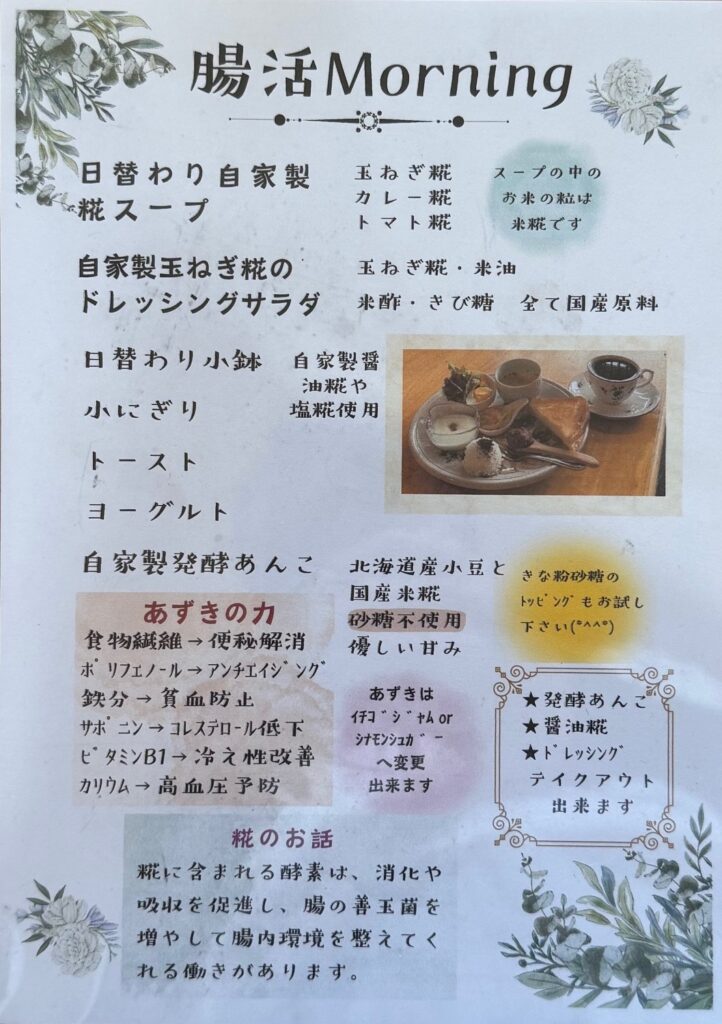 腸活Morning
日替わり自家製
糀スープ
玉ねぎ糀
カレー糀
トマト糀
スープの中の
お米の粒は
米糀です
自家製玉ねぎ糀の
ドレッシングサラダ
玉ねぎ糀・米油
米酢・きび糖　全て国産原料
日替わり小鉢
小にぎり
自家製醤
油糀や
塩糀使用
トースト
ヨーグルト
自家製発酵あんこ
北海道産小豆と
国産米糀
砂糖不使用
優しい甘み
きな粉砂糖の
ﾄｯﾋﾟﾝｸﾞもお試し
下さい(°^^°)
あずきの力
食物繊維→便秘解消
ﾎﾟﾘﾌｪﾉｰﾙ→ｱﾝﾁｴｲｼﾞﾝｸﾞ
鉄分→貧血防止
ｻﾎﾟﾆﾝ→ｺﾚｽﾃﾛｰﾙ低下
ﾋﾞﾀﾐﾝB1→冷え性改善
ｶﾘｳﾑ→高血圧予防
あずきは
ｲﾁｺﾞｼﾞｬﾑor
ｼﾅﾓﾝｼｭｶﾞｰ
へ変更
出来ます
★発酵あんこ
★醤油糀
★ﾄﾞﾚｯｼﾝｸﾞ
テイクアウト
出来ます
糀のお話
糀に含まれる酵素は、消化や
吸収を促進し、腸の善玉菌を
増やして腸内環境を整えてく
れる働きがあります。